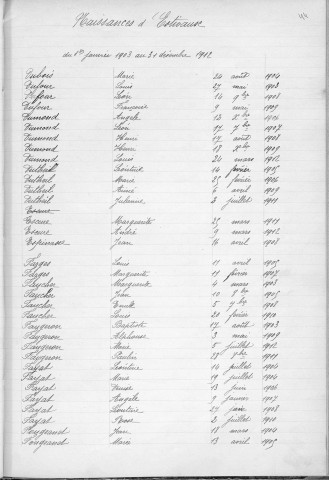 Naissances d'Estivaux
du 1er janvier 1903 au 31 décembre 1912
Dubois Marie 24 août 1904
Dufour Louis 27 mai 1903
Dufour Léon 14 9bre 1908
Dufour Françoise 9 mai 1909
Dumond Angèle 13 Xbre 1906
Dumond Léon 17 7bre 1907
Dumond Henri 17 août 1908
Dumond Henri 18 Xbre 1909
Dumond Louis 24 mars 1912
Dutheil 14 février 1905
Dutheil Marie 23 février 1906
Dutheil Aimée 6 avril 1909
Dutheil Julienne 3 juillet 1911
Escure
Escure Marguerite 23 mars 1911
Escure André 9 mars 1912
Espinasse Jean 16 avril 1908
Farges Louis 11 avril 1905
Farges Marguerite 11 février 1907
Faucher Marguerite 4 mars 1908
Faucher Jean 10 9bre 1905
Faucher Emile 5 9bre 1908
Faucher Louis 20 février 1910
Faugeron Baptiste 17 août 1903
Faugeron Alphonse 3 mai 1909
Faugeron Marie 5 juillet 1912
Faugeron Paulin 1911
Fayat Léontine 14 juillet 1904
Fayat Marie 19 juillet 1904
Fayat 13 juin 1906
Fayat Angèle 9 janvier 1907
Fayat Léontine 27 juin 1908
Fayat Rose 2 juillet 1910
Feugeaud Jean 18 mars 1904
Fougeaud Marie 13 avril 1905